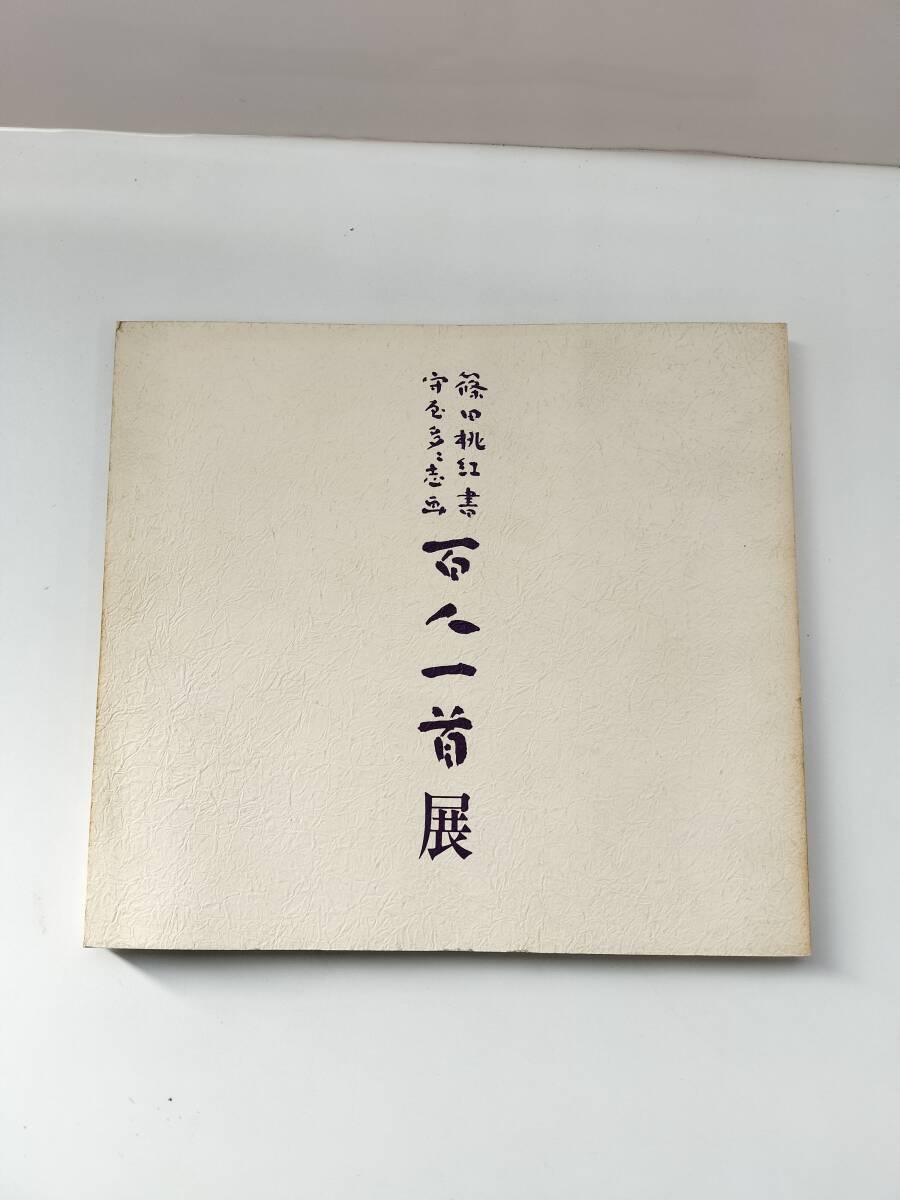 篠田桃紅書
守屋多々志画
百人一首展